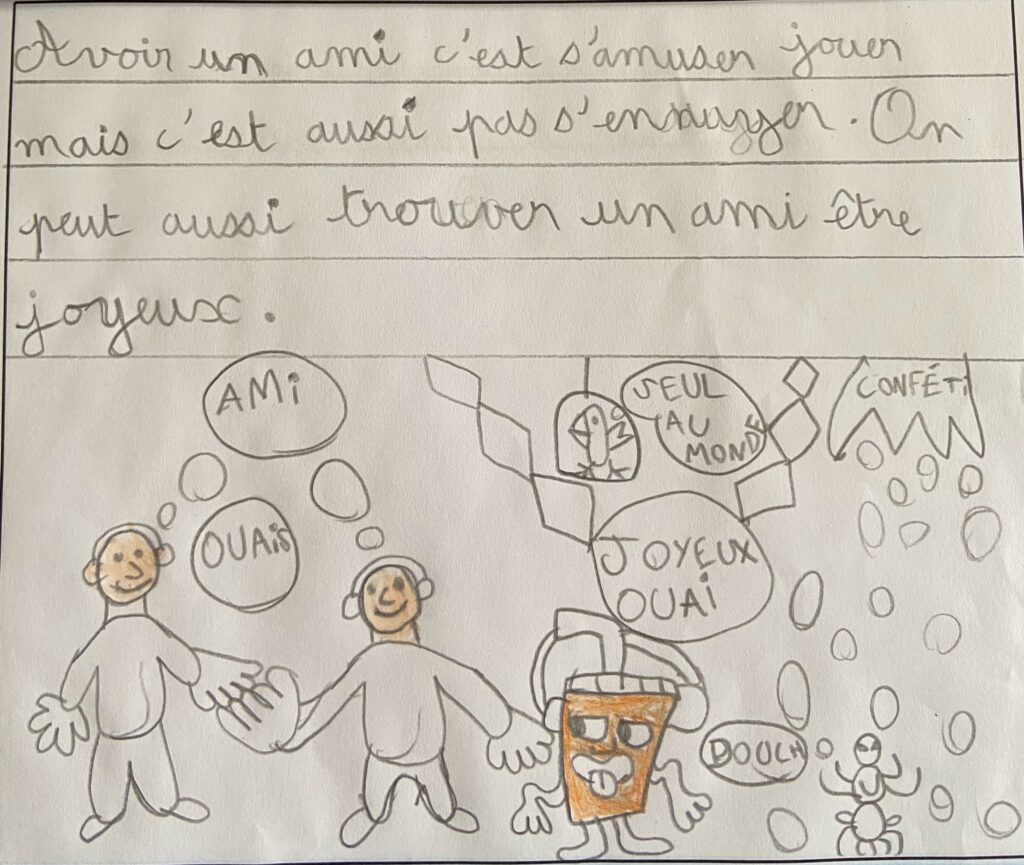 Avoir un ami c'est s'amuser jouer
mais c'est aussi pas s'ennuyer. On
peut aussi trouver un ami être
joyeux.
AMi
OUAiS
SEUL
AU
MONDE
CONFÉTi
JOYEUX
OUAi
DOUCH